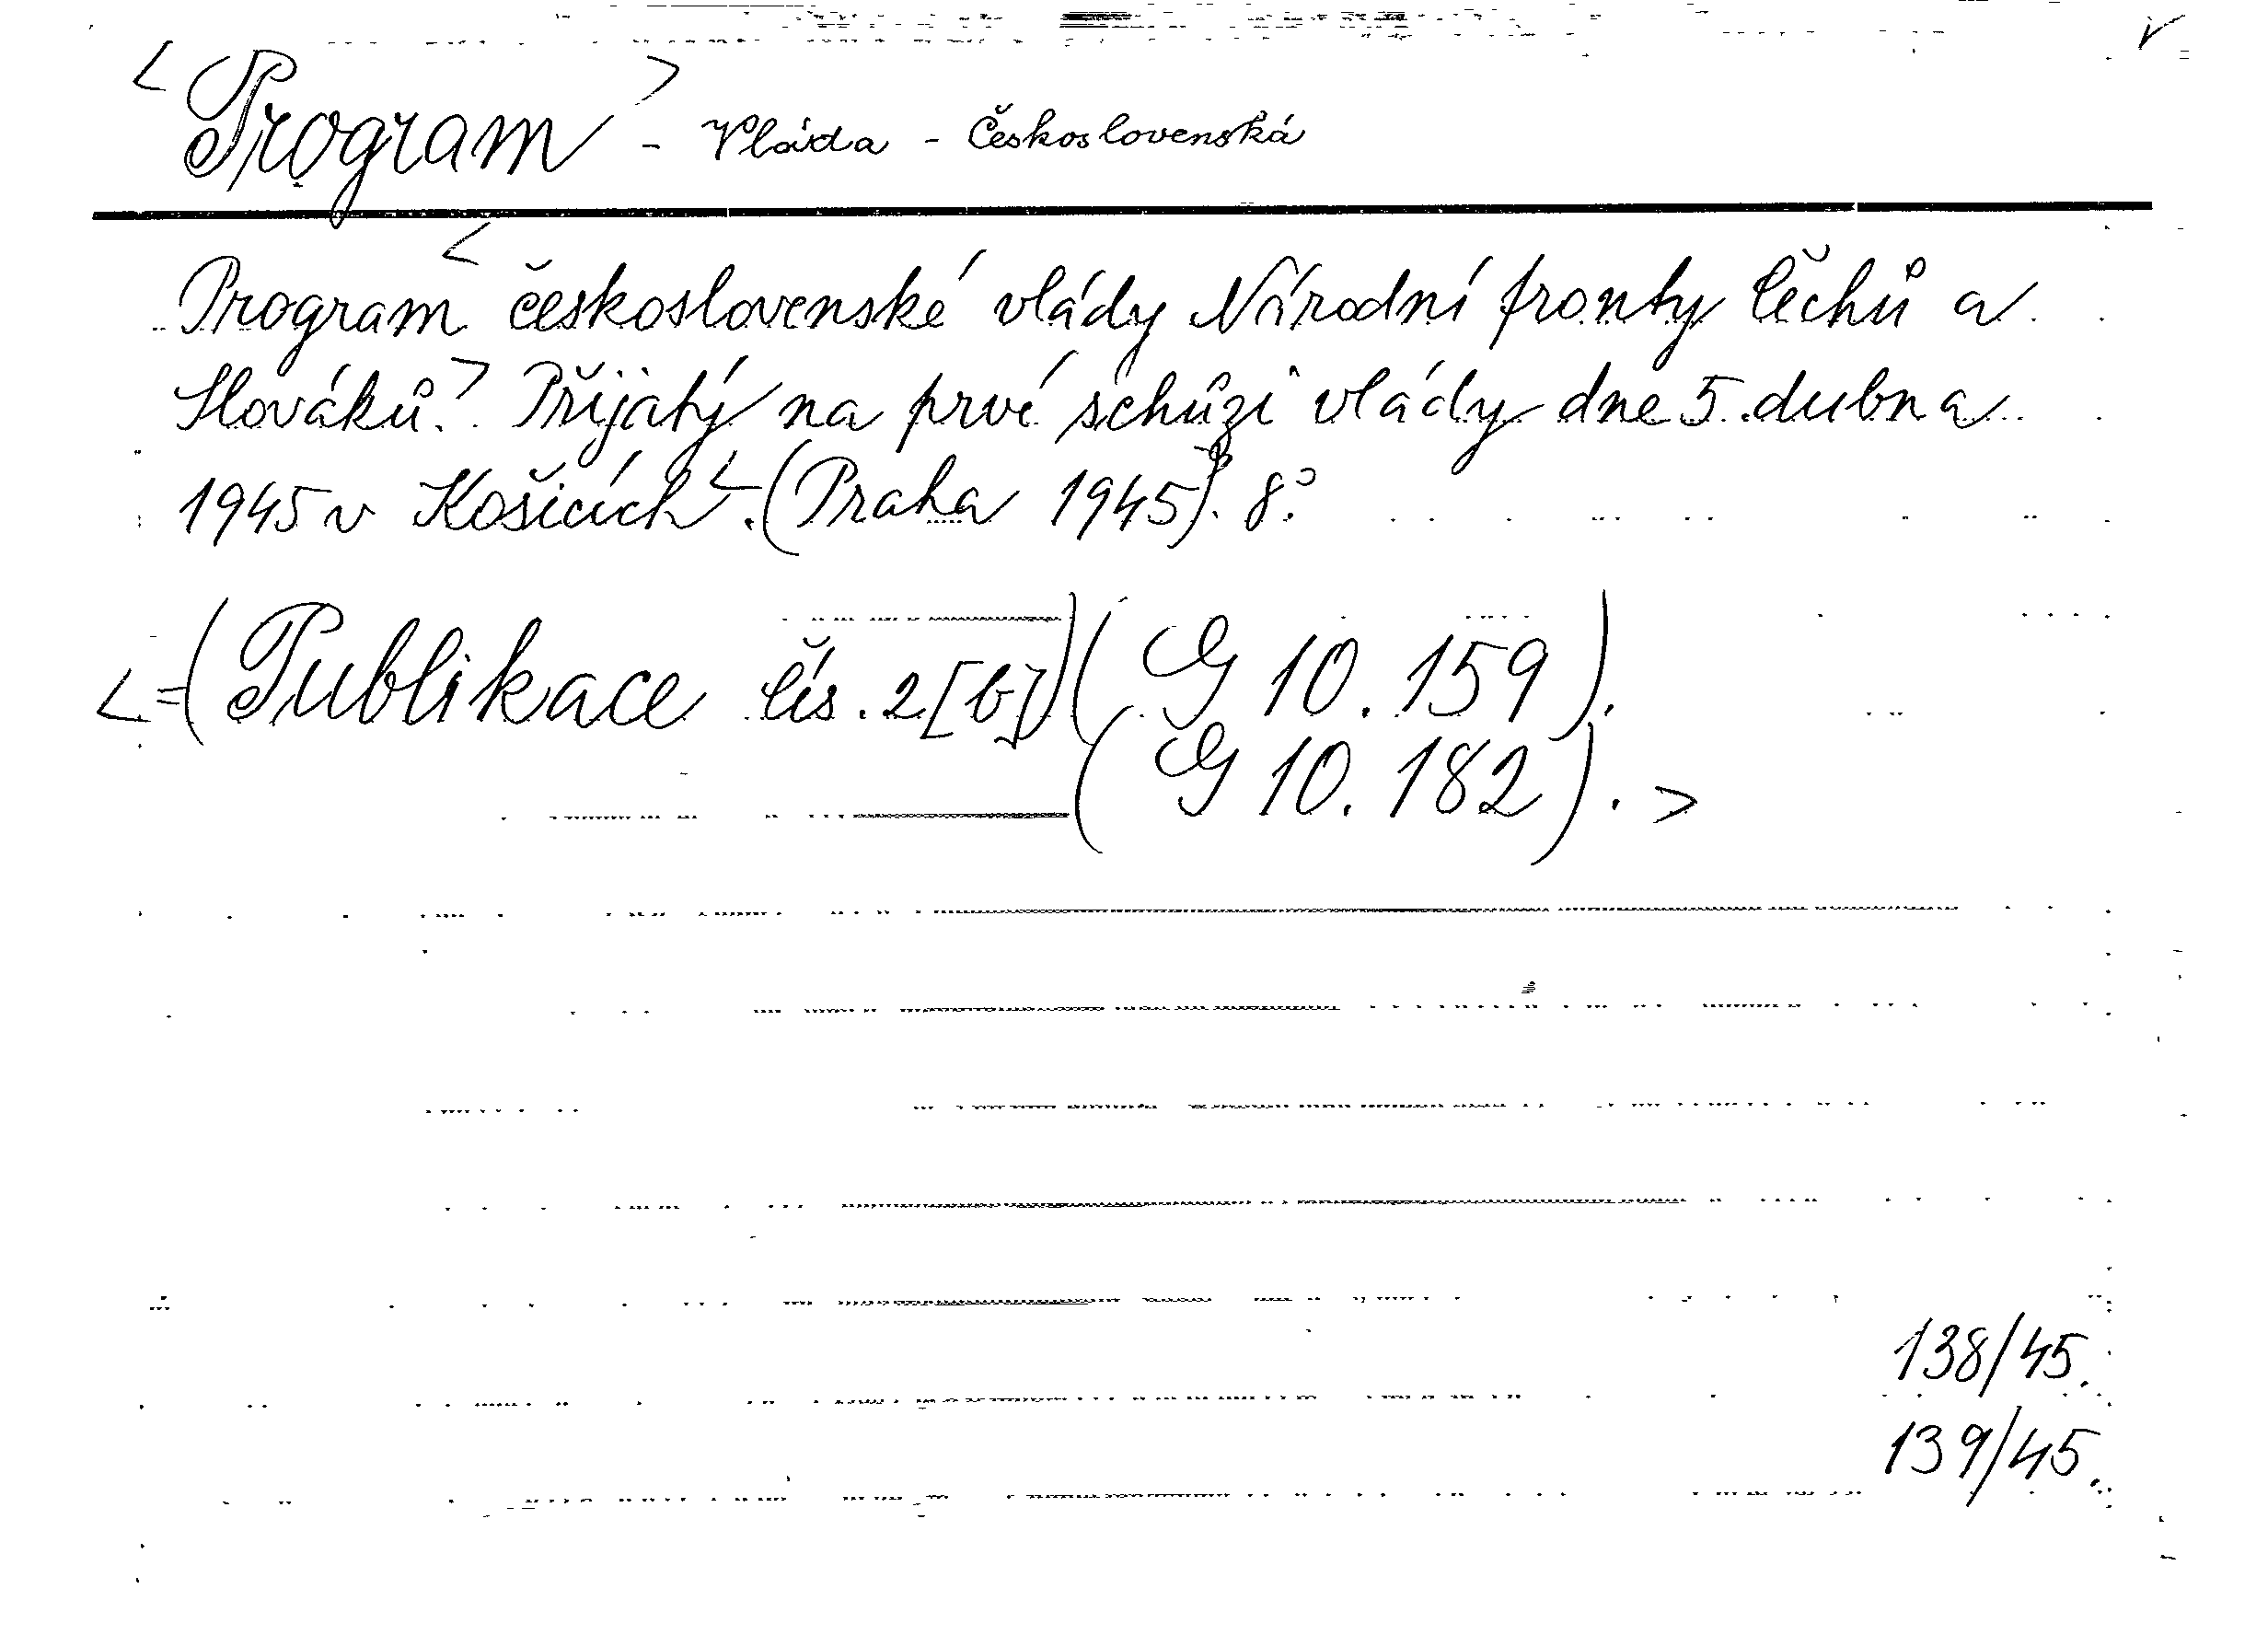 <Program> - Vláda - Československá
Program <československé vlády Národní fronty Čechů a
Slováků.> Přijatý na prvé schůzi vlády dne 5. dubna
1945 v Košicích<. (Praha 1945). 8°.
<=(Publikace čís. 2[b])(G 10.159).
(G 10.182). >
138/45.
139/45.